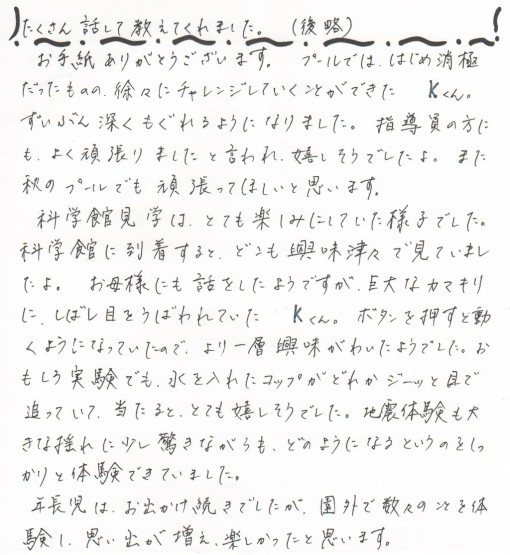 たくさん話して教えてくれました。 (後略)
お手紙ありがとうございます。 プールでは、はじめ消極
だったものの、徐々にチャレンジしていくことができた Kくん。
ずいぶん深くもぐれるようになりました。 指導員の方に
も、よく頑張りましたと言われ、嬉しそうでしたよ。 また
秋のプールでも頑張ってほしいと思います。
科学館見学は、とても楽しみにしていた様子でした。
科学館に到着すると、どこも興味津々で見ていまし
たよ。 お母様にも話をしたようですが、巨大なカマキリ
に、しばし目をうばわれていた Kくん。 ボタンを押すと動
くようになっていたので、より一層興味がわいたようでした。お
もしろ実験でも、水を入れたコップがどれかジーッと目で
追っていて、当たると、とても嬉しそうでした。地震体験も大
きな揺れに少し驚きながらも、どのようになるというのをしっ
かりと体験できていました。
年長児は、お出かけ続きでしたが、園外で数々のことを体
験し、思い出が増え、楽しかったと思います。